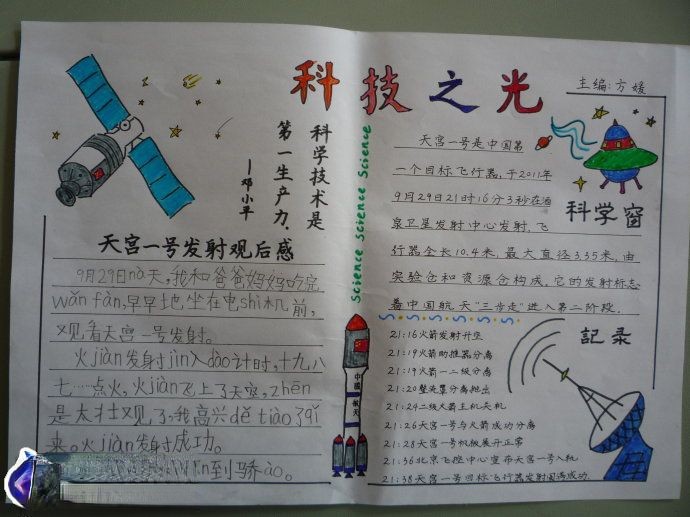 科技之光
主编:方媛
科学技术是
第一生产力.
—邓小平
天宫一号发射观后感
9月29日nà天,我和爸爸妈妈吃完
wǎn fàn,早早地坐在电shì机前,
观看天宫一号发射。
火jiàn发射jìn入dào计时,十九八
七……点火,火jiàn飞上了天空,zhēn
是太壮观了,我高兴dě tiào了qǐ
来。火jiàn发射成功。
到骄ào。
Science Science Science
中国
航天
天宫一号是中国第
一个目标飞行器,于2011年
9月29日21时16分3秒在酒
泉卫星发射中心发射,飞
行器全长10.4米,最大直径3.35米,由
实验仓和资源仓构成,它的发射标志
着中国航天"三步走"进入第二阶段.
科学窗
記录
21:16火箭发射升空
21:19火箭助推器分离
21:19火箭一二级分离
21:20整流罩分离抛出
21:24二级火箭主机关机
21:26天宫一号与火箭成功分离
21:28天宫一号帆板展开正常
21:36北京飞控中心宣布天宫一号入轨
21:38天宫一号目标飞行器发射圆满成功.